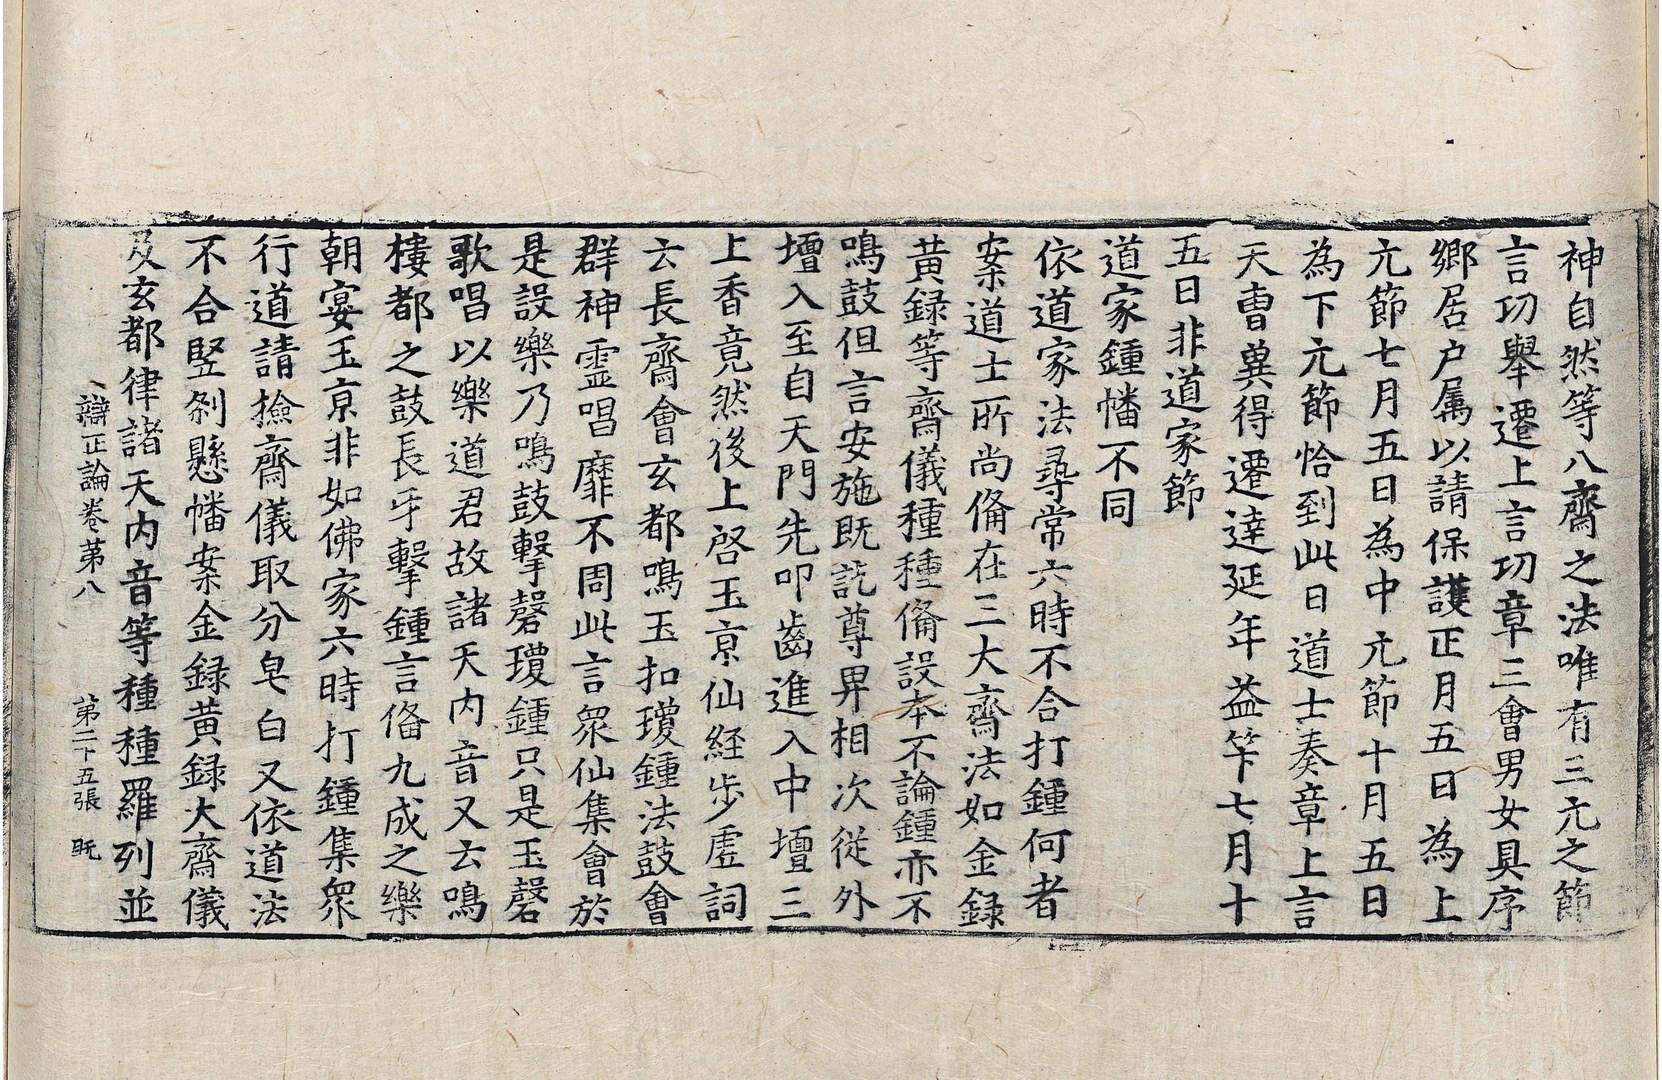 神自然等八齋之法唯有三元之節
言功舉遷上言功章三會男女具序
鄉居户属以請保護正月五日為上
元節七月五日為中元節十月五日
為下元節恰到此日道士奏章上言
天曺兾得遷達延年益筭七月十
五日非道家節
道家鍾幡不同
依道家法尋常六時不合打鍾何者
案道士所尚俻在三大齋法如金録
黄録等齋儀種種俻設夲不論鍾亦不
鳴鼓但言安施既訖尊畀相次従外
壇入至自天門先叩齒進入中壇三
上香竟然後上啓玉京仙経步虚詞
云長齋會玄都鳴玉扣瓊鍾法鼓會
群神靈唱靡不周此言衆仙集會於
是設樂乃鳴鼓擊磬瓊鍾只是玉磬
歌唱以樂道君故諸天内音又云鳴
樓都之鼓長牙擊鍾言俻九成之樂
朝宴玉京非如佛家六時打鍾集衆
行道請撿齋儀取分皂白又依道法
不合竪刹懸幡案金録黄録大齋儀
及玄都律諸天内音等種種羅列並
辯正論卷第八 第二十五張 既